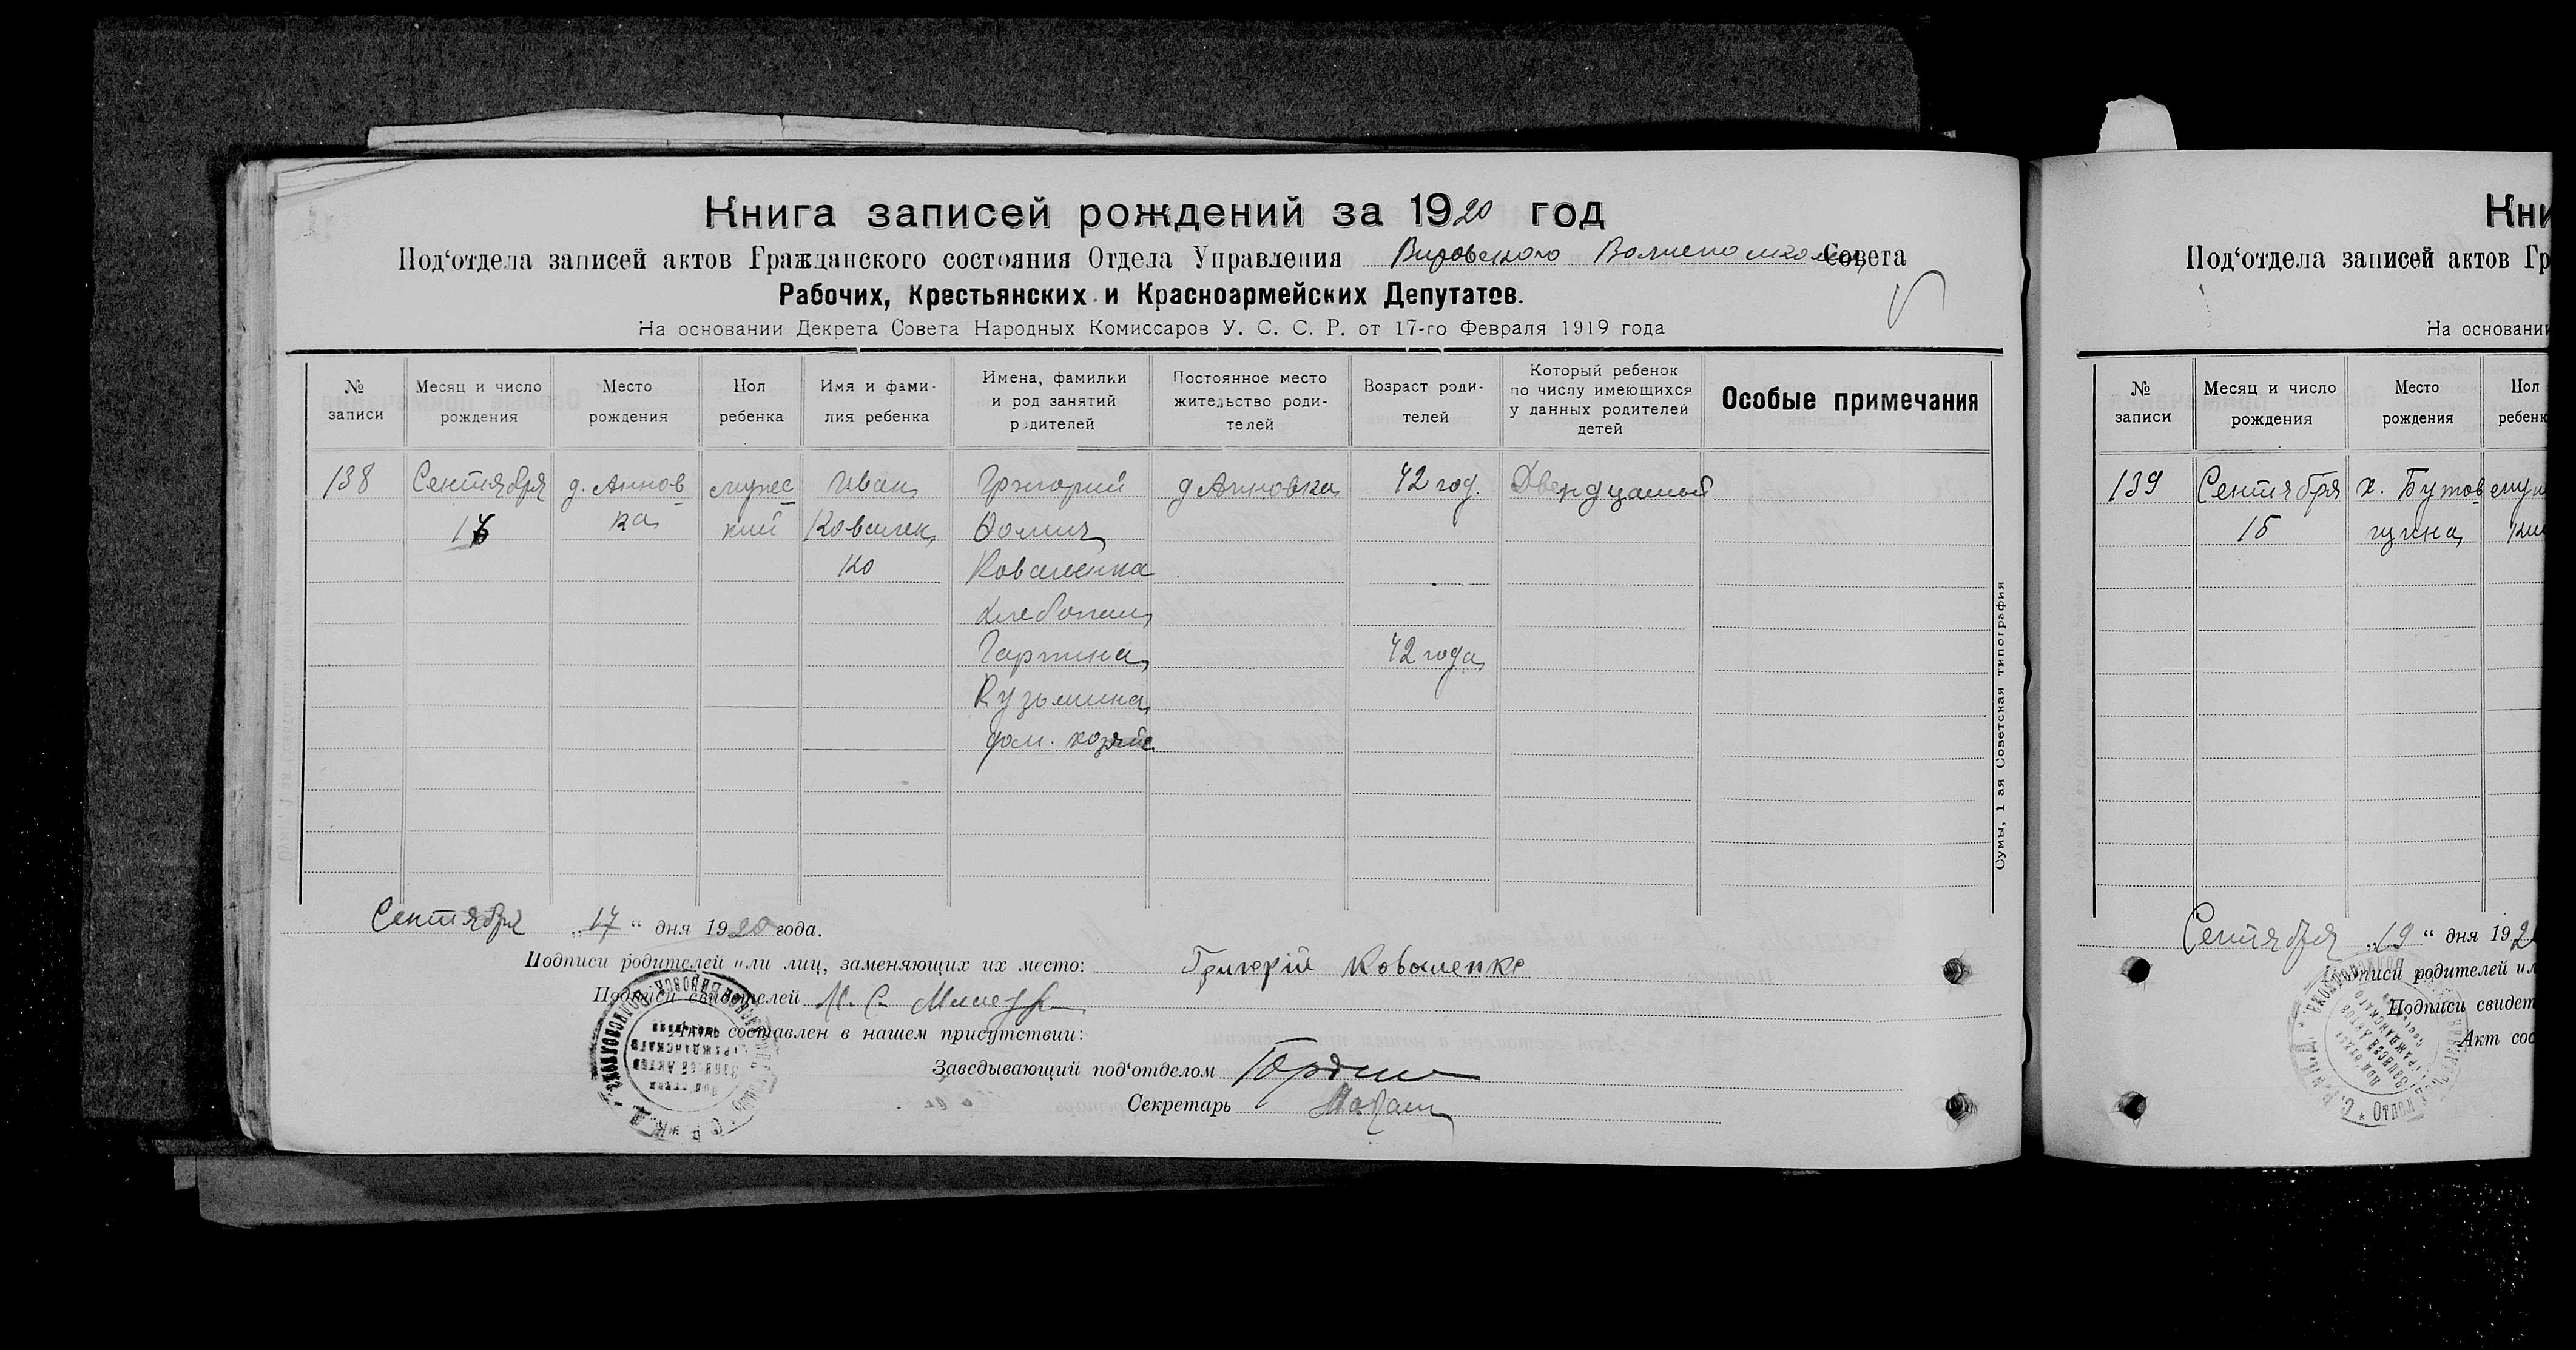 Книга записей рождений за 1920 год
Под‘отдела записей актов Гражданского состояния Отдела Управления Вировского Волисполкома Совета
Рабочих, Крестьянских и Красноармейских Депутатов.
На основании Декрета Совета Народных Комиссаров У. С. С. Р. от 17-го Февраля 1919 года
№ записи
Месяц и число рождения
Место рождения
Пол ребенка
Имя и фамилия ребенка
Имена, фамилии и род занятий родителей
Постоянное место жительство родителей
Возраст родителей
Который ребенок по числу имеющихся у данных родителей детей
Особые примечания
138 Сентября д. Аннов мужес Иван Григорий д Анновка 42 год.
ка кий Ковален Фомич
ко Коваленко
хлебопаш
42 года
Кузьмина
дом. хозяйс
Сентября „17“ дня 1920 года.
Подписи родителей или лиц, заменяющих их место: Григорій Коваленко
Подписи свидетелей М. С.
Акт составлен в нашем присутствии:
Заведывающий под‘отделом
Секретарь
Сумы, 1 ая Советская типография
Кни
Под‘отдела записей актов Гр
На основании
№ записи
Месяц и число рождения
Место рождения
Пол ребенк
139 Сентября х. Бутов муж
15 щина ки
Сентября „19“ дня 192
Подписи родителей ил
Подписи свидет
Акт сос